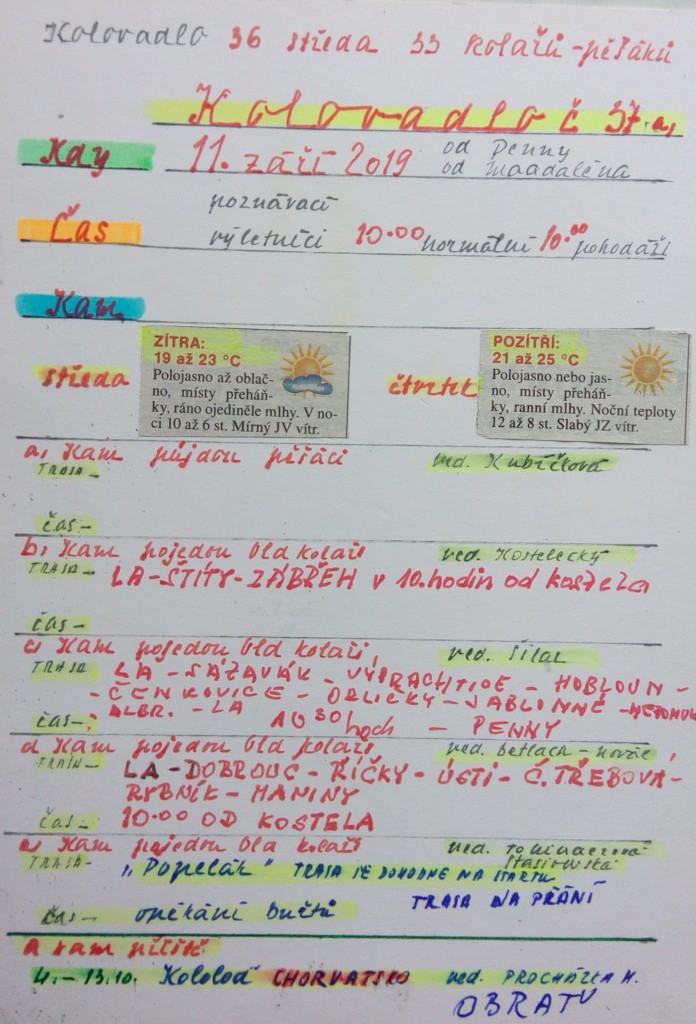 Kolovadlo 36 středa 33 kolařů-pěšáků
Kolovadlo č 37.a,
Kdy 11. září 2019 od Penny
od Maadaléna
poznávací
Čas výletníci 10.00 normální 10.00 pohodáři
Kam
středa
ZÍTRA:
19 až 23 °C
Polojasno až oblač-
no, místy přeháň-
ky, ráno ojediněle mlhy. V no-
ci 10 až 6 st. Mírný JV vítr.
čtvrtek
POZÍTŘÍ:
21 až 25 °C
Polojasno nebo jas-
no, místy přeháň-
ky, ranní mlhy. Noční teploty
12 až 8 st. Slabý JZ vítr.
a, Kam půjdou pěšáci ved. Kubíčková
TRASA -
čas -
b, Kam pojedou Old kolaři ved. Kostelecký
TRASA - LA-ŠTÍTY-ZÁBŘEH v 10.hodin od kostela
čas -
c, Kam pojedou Old kolaři, ved. Šilar
TRASA LA - SÁZAVÁK - VÝPRACHTICE - HOBLOUN -
- ČENKOVICE - ORLIČKY - JABLONNÉ -
ALBR. - LA
čas -: 10 30 hoch - PENNY
d, Kam pojedou Old kolaři, ved. Betlach -
LA-DOBROUČ - ŘÍČKY - ÚSTÍ - Č.TŘEBOVÁ-
RYBNÍK - MANINY
čas - 10.00 OD KOSTELA
e, Kam pojedou Old kolaři ved.
Stasiowska
TRASA- "Popelák" TRASA SE DOHODNE NA STARTU
TRASA NA PŘÁNÍ
čas - opékání buřtů
A kam příště
4.-13.10. Kololoď CHORVATSKO ved. PROCHÁZKA M.
OBRAŤ